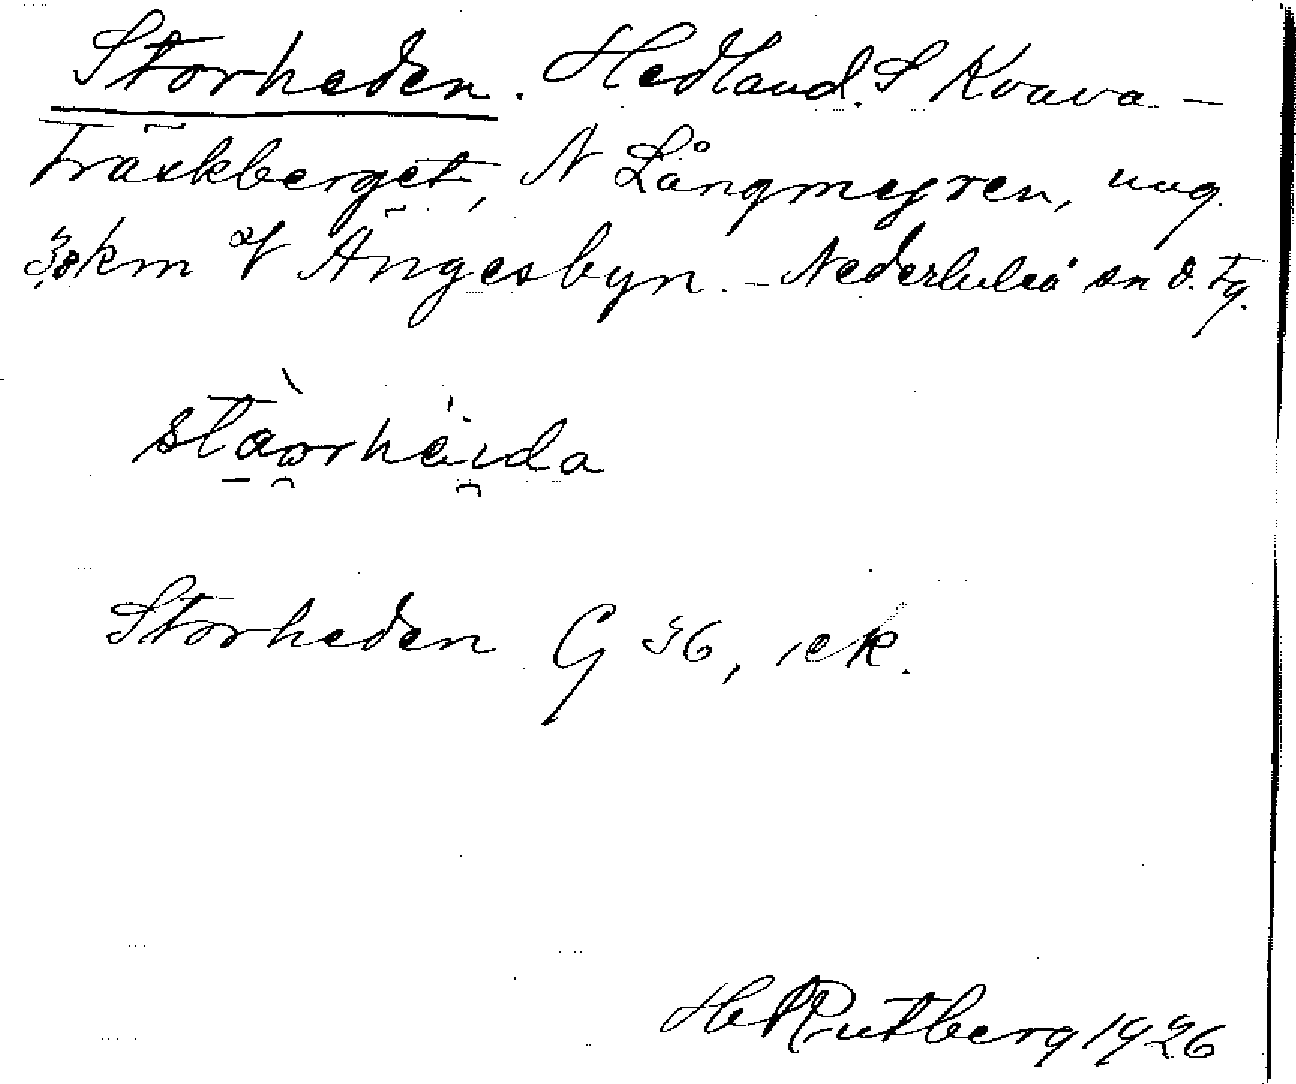 Storheden. Hedland. S Kvava-
träskberget, N Långmyren, ung.
3,8 km V Ängesbyn. - Nederluleå sn ö. tg.
Storheden G 36, ek.
Hl Rutberg 1926